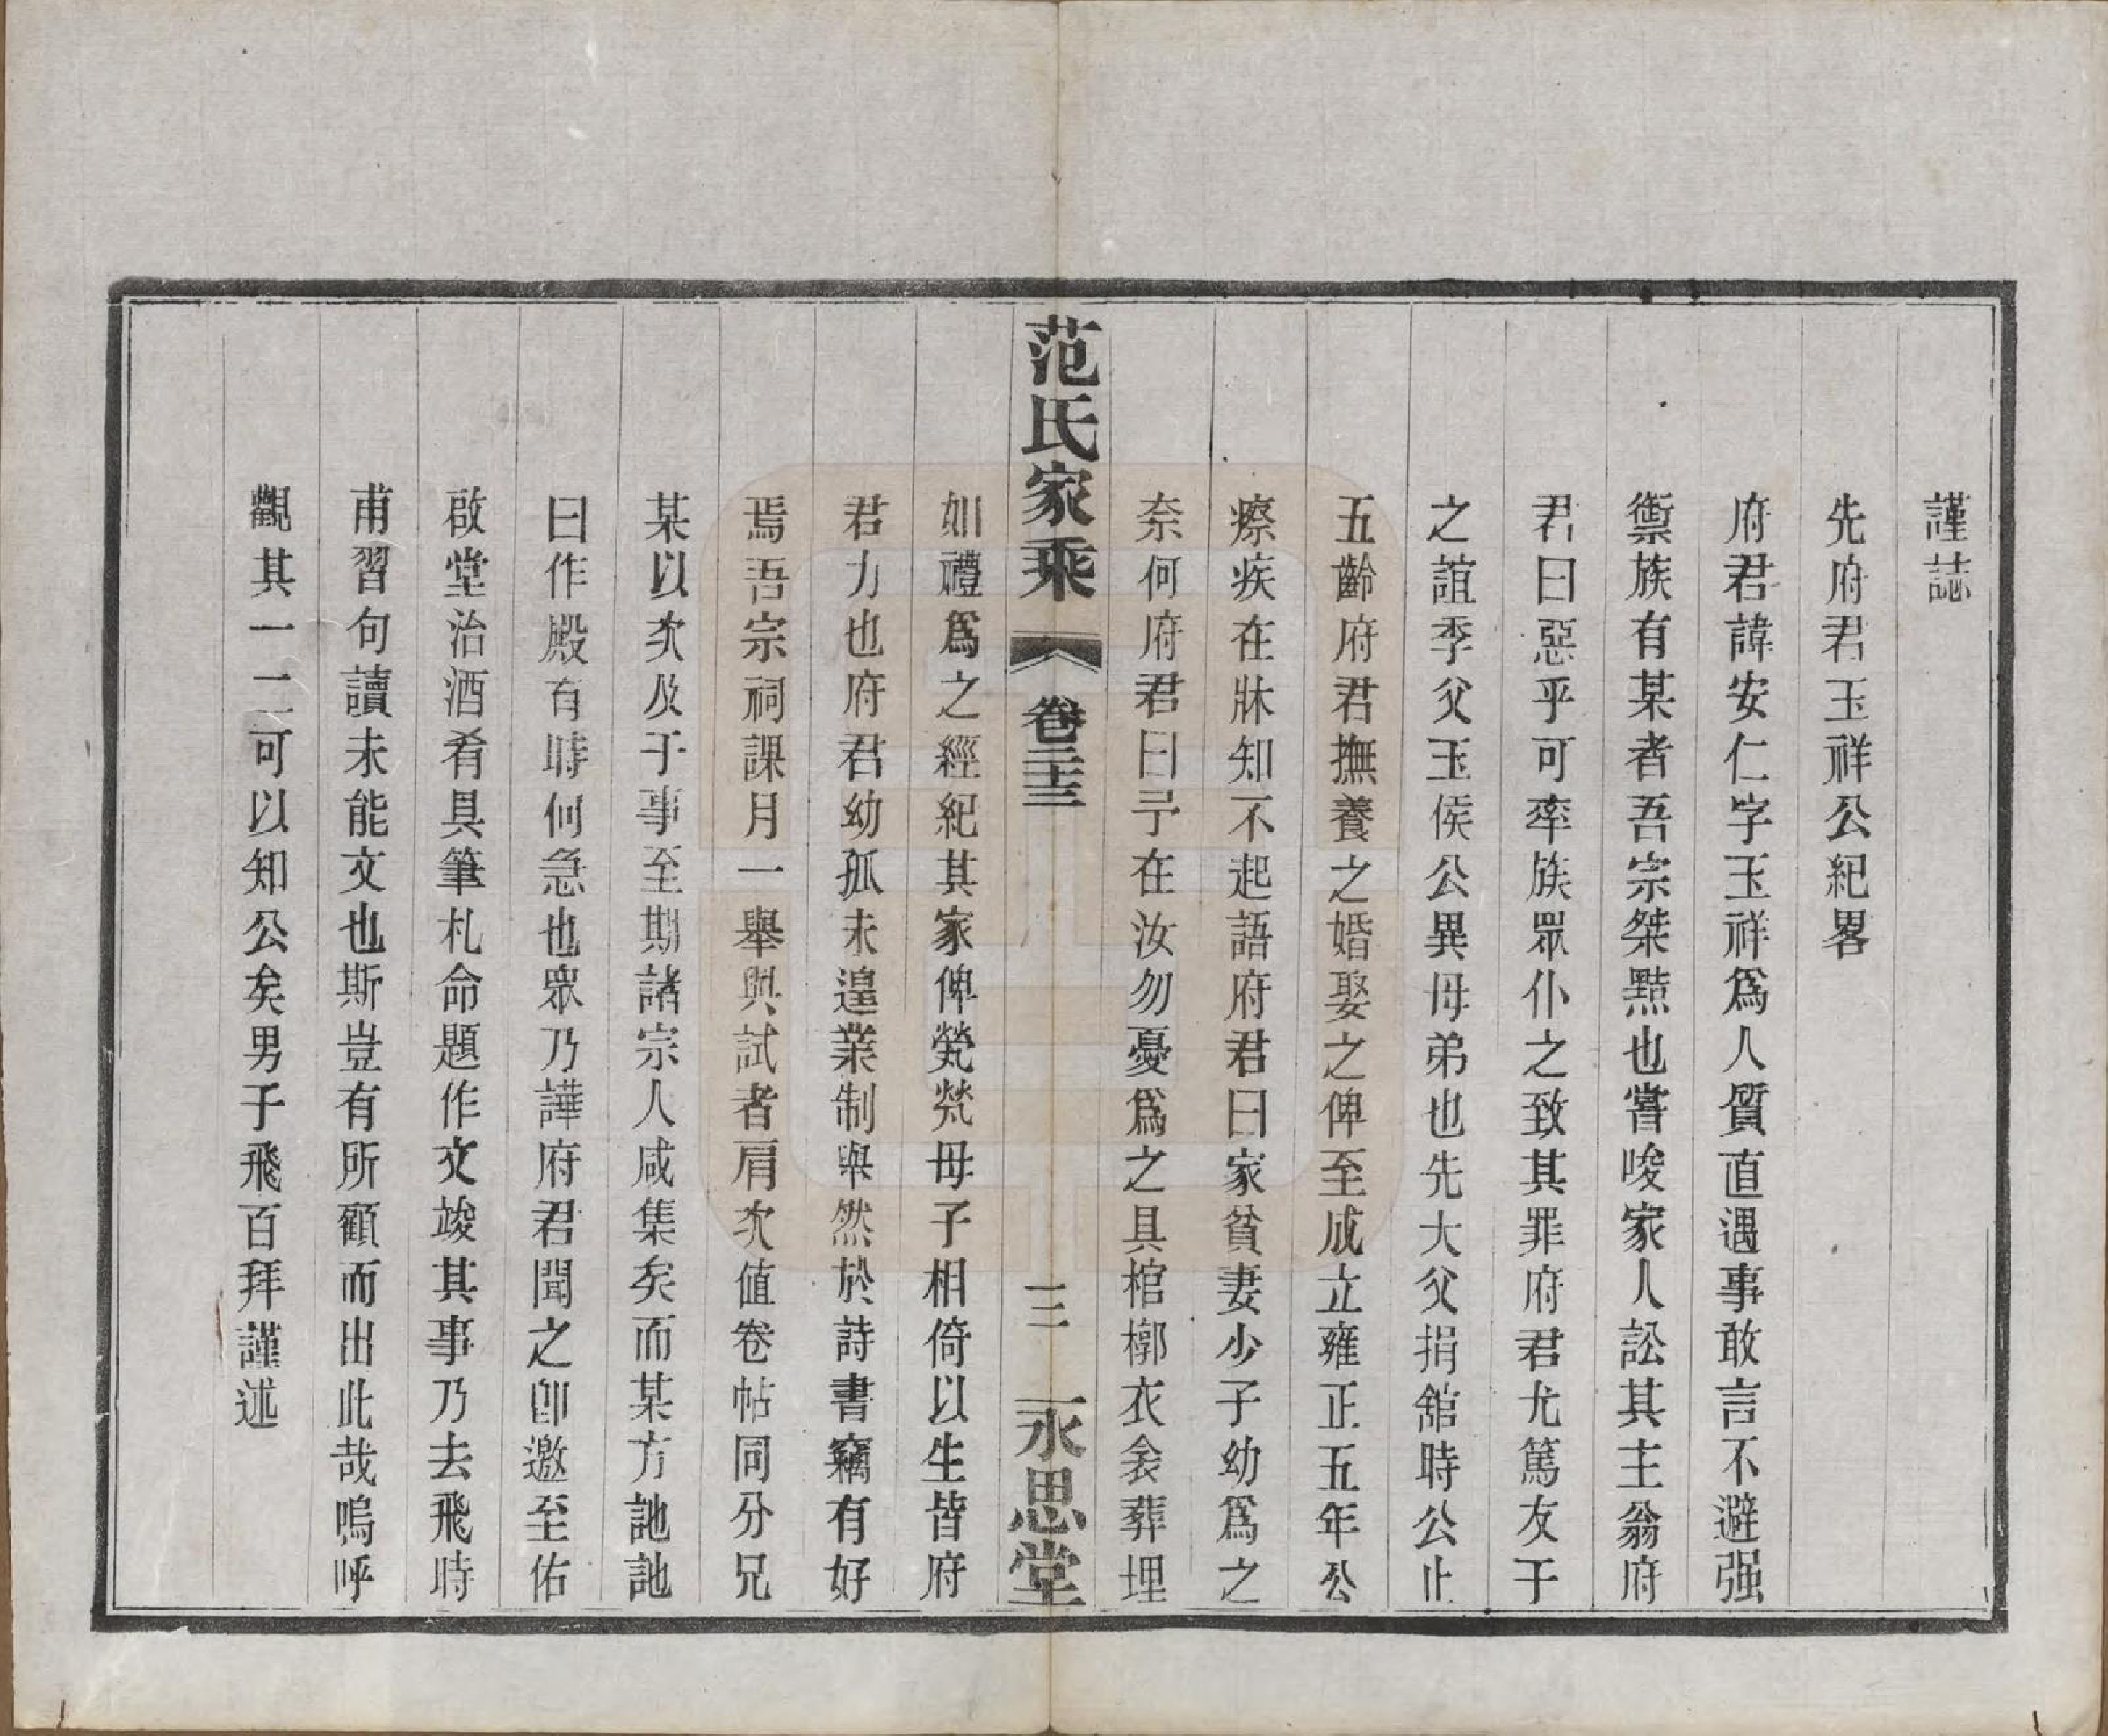 謹誌
先府君玉祥公紀畧
府君諱安仁字玉祥爲人質直遇事敢言不避强
禦族有某者吾宗桀黠也嘗唆家人訟其主翁府
君曰惡乎可率族眾仆之致其罪府君尤篤友于
之誼季父玉侯公異母弟也先大父捐舘時公止
五齡府君撫養之婚娶之俾至成立雍正五年公
瘵疾在牀知不起語府君曰家貧妻少子幼爲之
奈何府君曰予在汝勿憂爲之具棺槨衣衾葬埋
范氏家乘 卷二十三 三 永思堂
如禮爲之經紀其家俾煢煢母子相倚以生皆府
君力也府君幼孤未遑業制舉然於詩書竊有好
焉吾宗祠課月一舉與試者肩次值卷帖同分兄
某以次及于事至期諸宗人咸集矣而某方訑訑
曰作殿有時何急也眾乃譁府君聞之卽邀至佑
啟堂治酒肴具筆札命題作文竣其事乃去飛時
甫習句讀未能文也斯豈有所顧而出此哉嗚呼
觀其一二可以知公矣男子飛百拜謹述